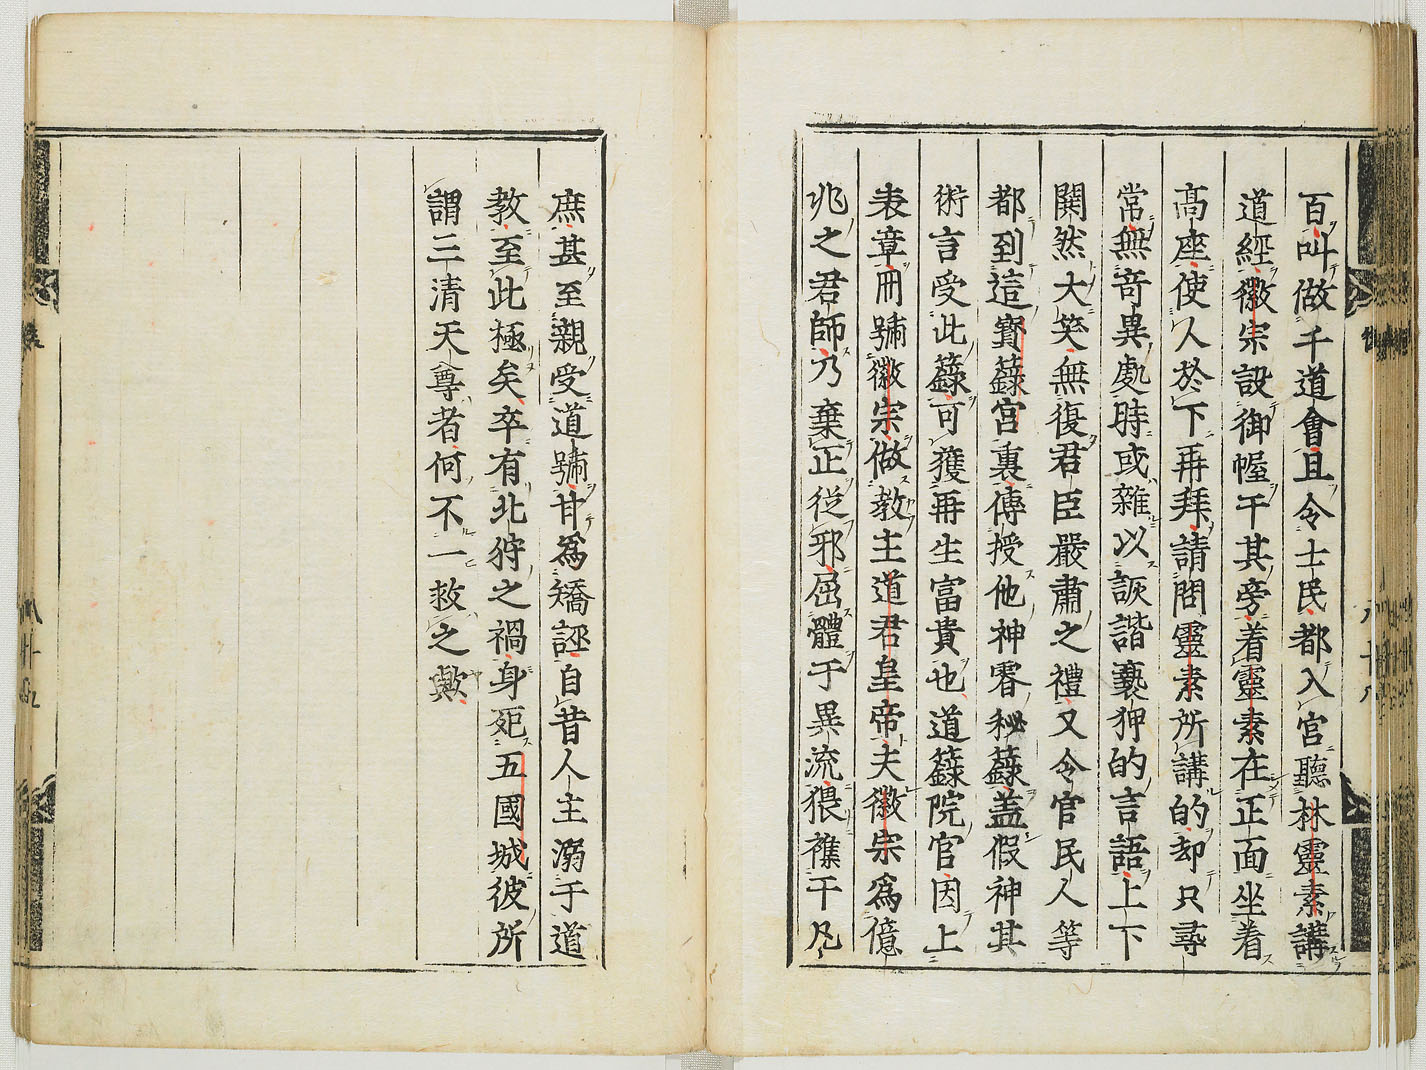 百叫做千道會且令士民都入宮聽林靈素講
道經徽宗設御幄于其旁着靈素在正面坐着
高座使人於下再拜請問靈素所講的却只尋
常無奇異處時或雜以詼諧褻狎的言語上下
鬨然大笑無復君臣嚴肅之禮又令官民人等
都到這寶籙宮裏傳授他神霄秘籙盖假神其
術言受此籙可獲再生富貴也道籙院官因上
表章冊號徽宗做教主道君皇帝夫徽宗爲億
兆之君師乃棄正從邪屈體于異流猥襍于凡
庶甚至親受道號甘爲矯誣自昔人主溺于道
教至此極矣卒有北狩之禍身死五國城彼所
謂三清天尊者何不一救之歟